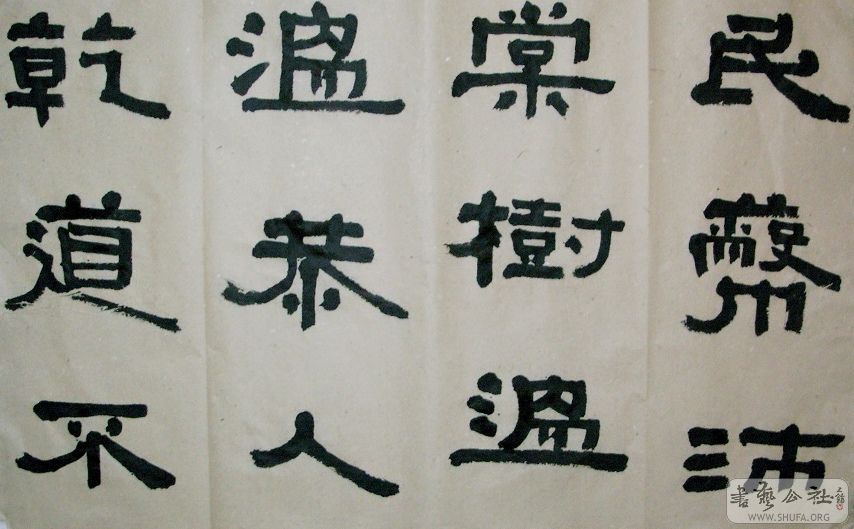 民幣沛
棠樹溫
溫恭人
乾道不
書藝公社
WWW.SHUFA.ORG